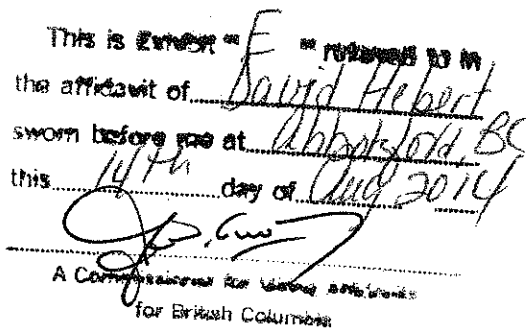 This is Exhibit "E" referred to in
the affidavit of David Hebert
sworn before me at Abbotsford BC
this 14th day of Aug 2014
A Commissioner for taking affidavits
for British Columbia